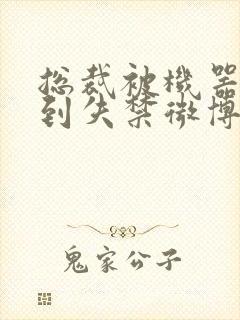 总裁被机器
到失禁微博
鬼家公子